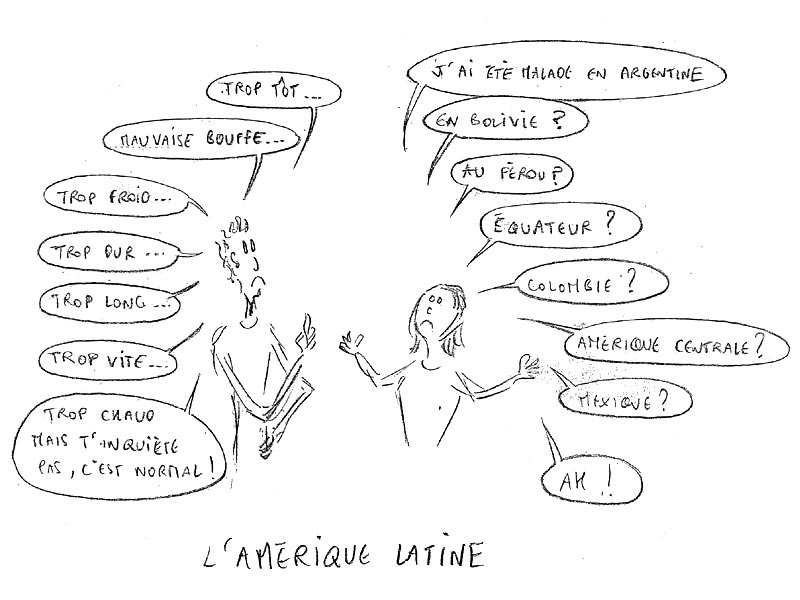 J'AI ÉTÉ MALADE EN ARGENTINE
TROP TÔT...
EN BOLIVIE ?
MAUVAISE BOUFFE...
AU PÉROU ?
TROP FROID...
ÉQUATEUR ?
TROP DUR ...
COLOMBIE ?
TROP LONG...
AMÉRIQUE CENTRALE ?
TROP VITE...
MEXIQUE ?
TROP CHAUD
MAIS T'INQUIÈTE
PAS, C'EST NORMAL !
AH !
L'AMÉRIQUE LATINE